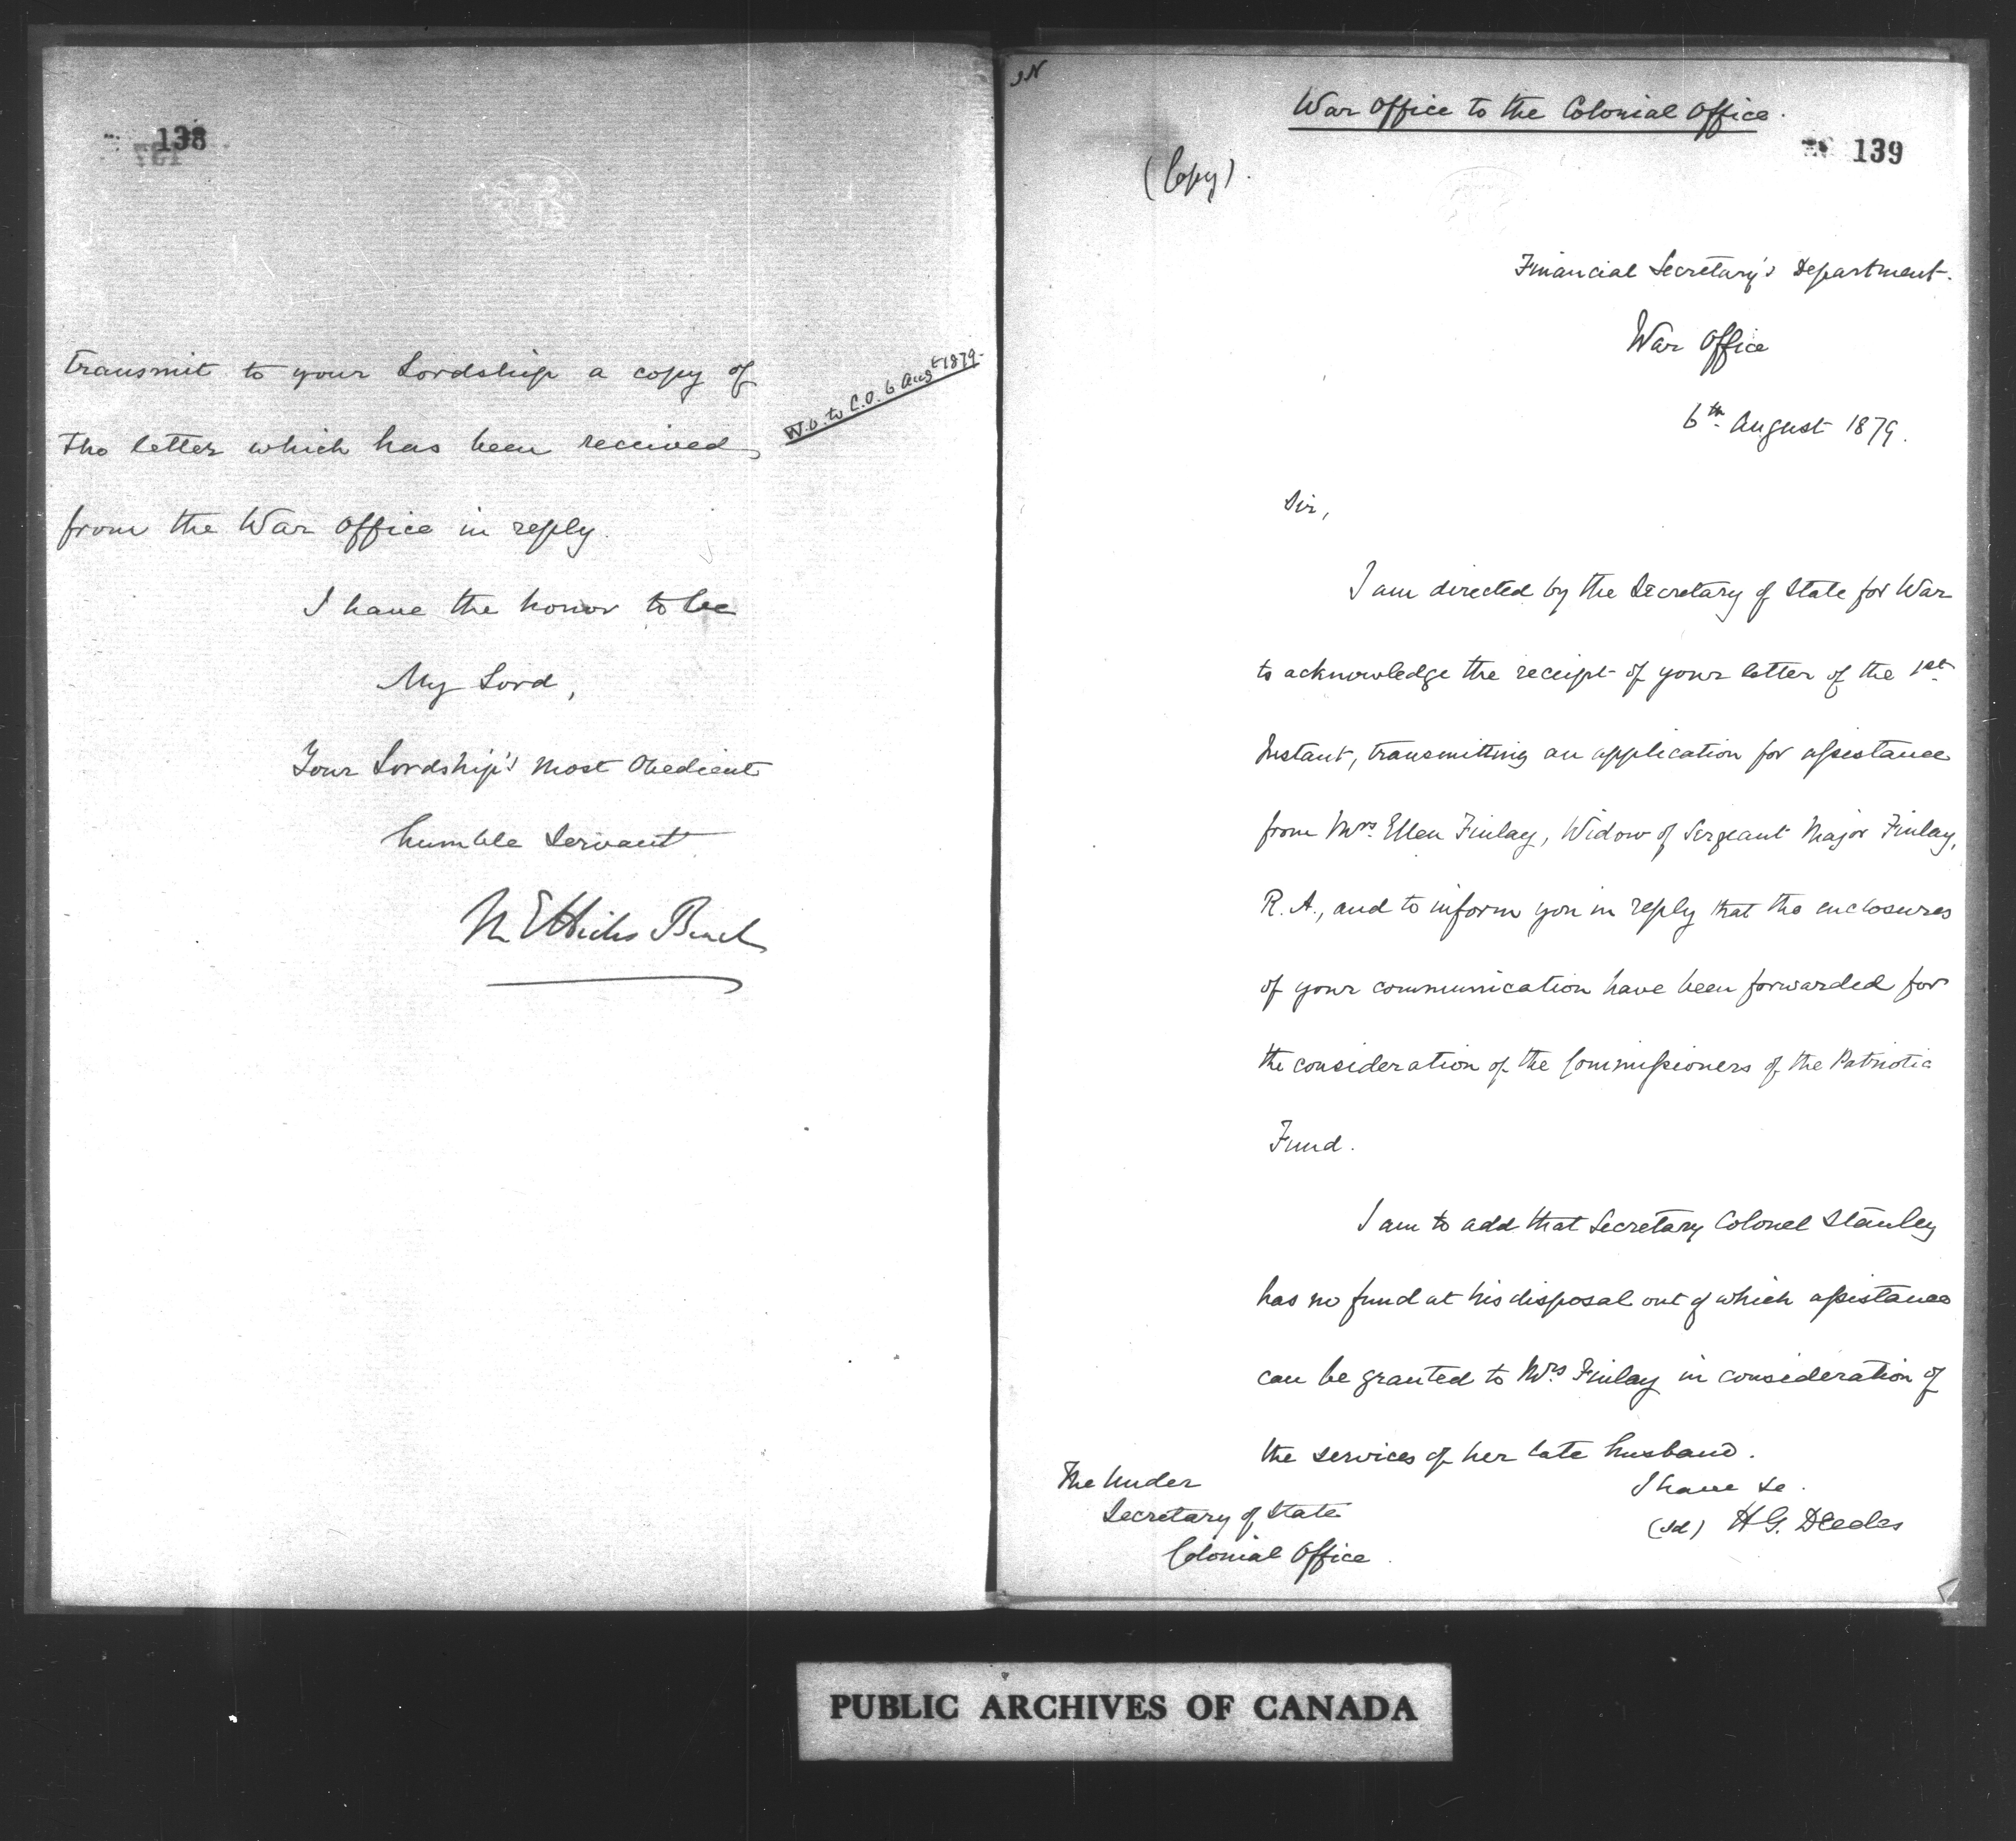 138
transmit to your Lordship a copy of
W.O. to C.O. 6 Augt 1879
the letter which has been received
from the War Office in reply.
I have the honor to be
My Lord,
Your Lordship's most obedient
humble servant
M E Hicks Beach
War Office to the Colonial Office.
139
(Copy).
Financial Secretary's Department.
War Office
6th August 1879.
Sir,
I am directed by the Secretary of State for War
to acknowledge the receipt of your letter of the 1st
Instant, transmitting an application for assistance
from Mrs. Ellen Finlay, Widow of Sergeant Major Finlay,
R.A., and to inform you in reply that the enclosures
of your communication have been forwarded for
the consideration of the Commissioners of the Patriotic
Fund.
I am to add that Secretary Colonel Stanley
has no fund at his disposal out of which assistance
can be granted to Mrs Finlay in consideration of
the services of her late husband.
I have &c.
(sd) H G. Deedes
The Under
Secretary of State
Colonial Office.
PUBLIC ARCHIVES OF CANADA